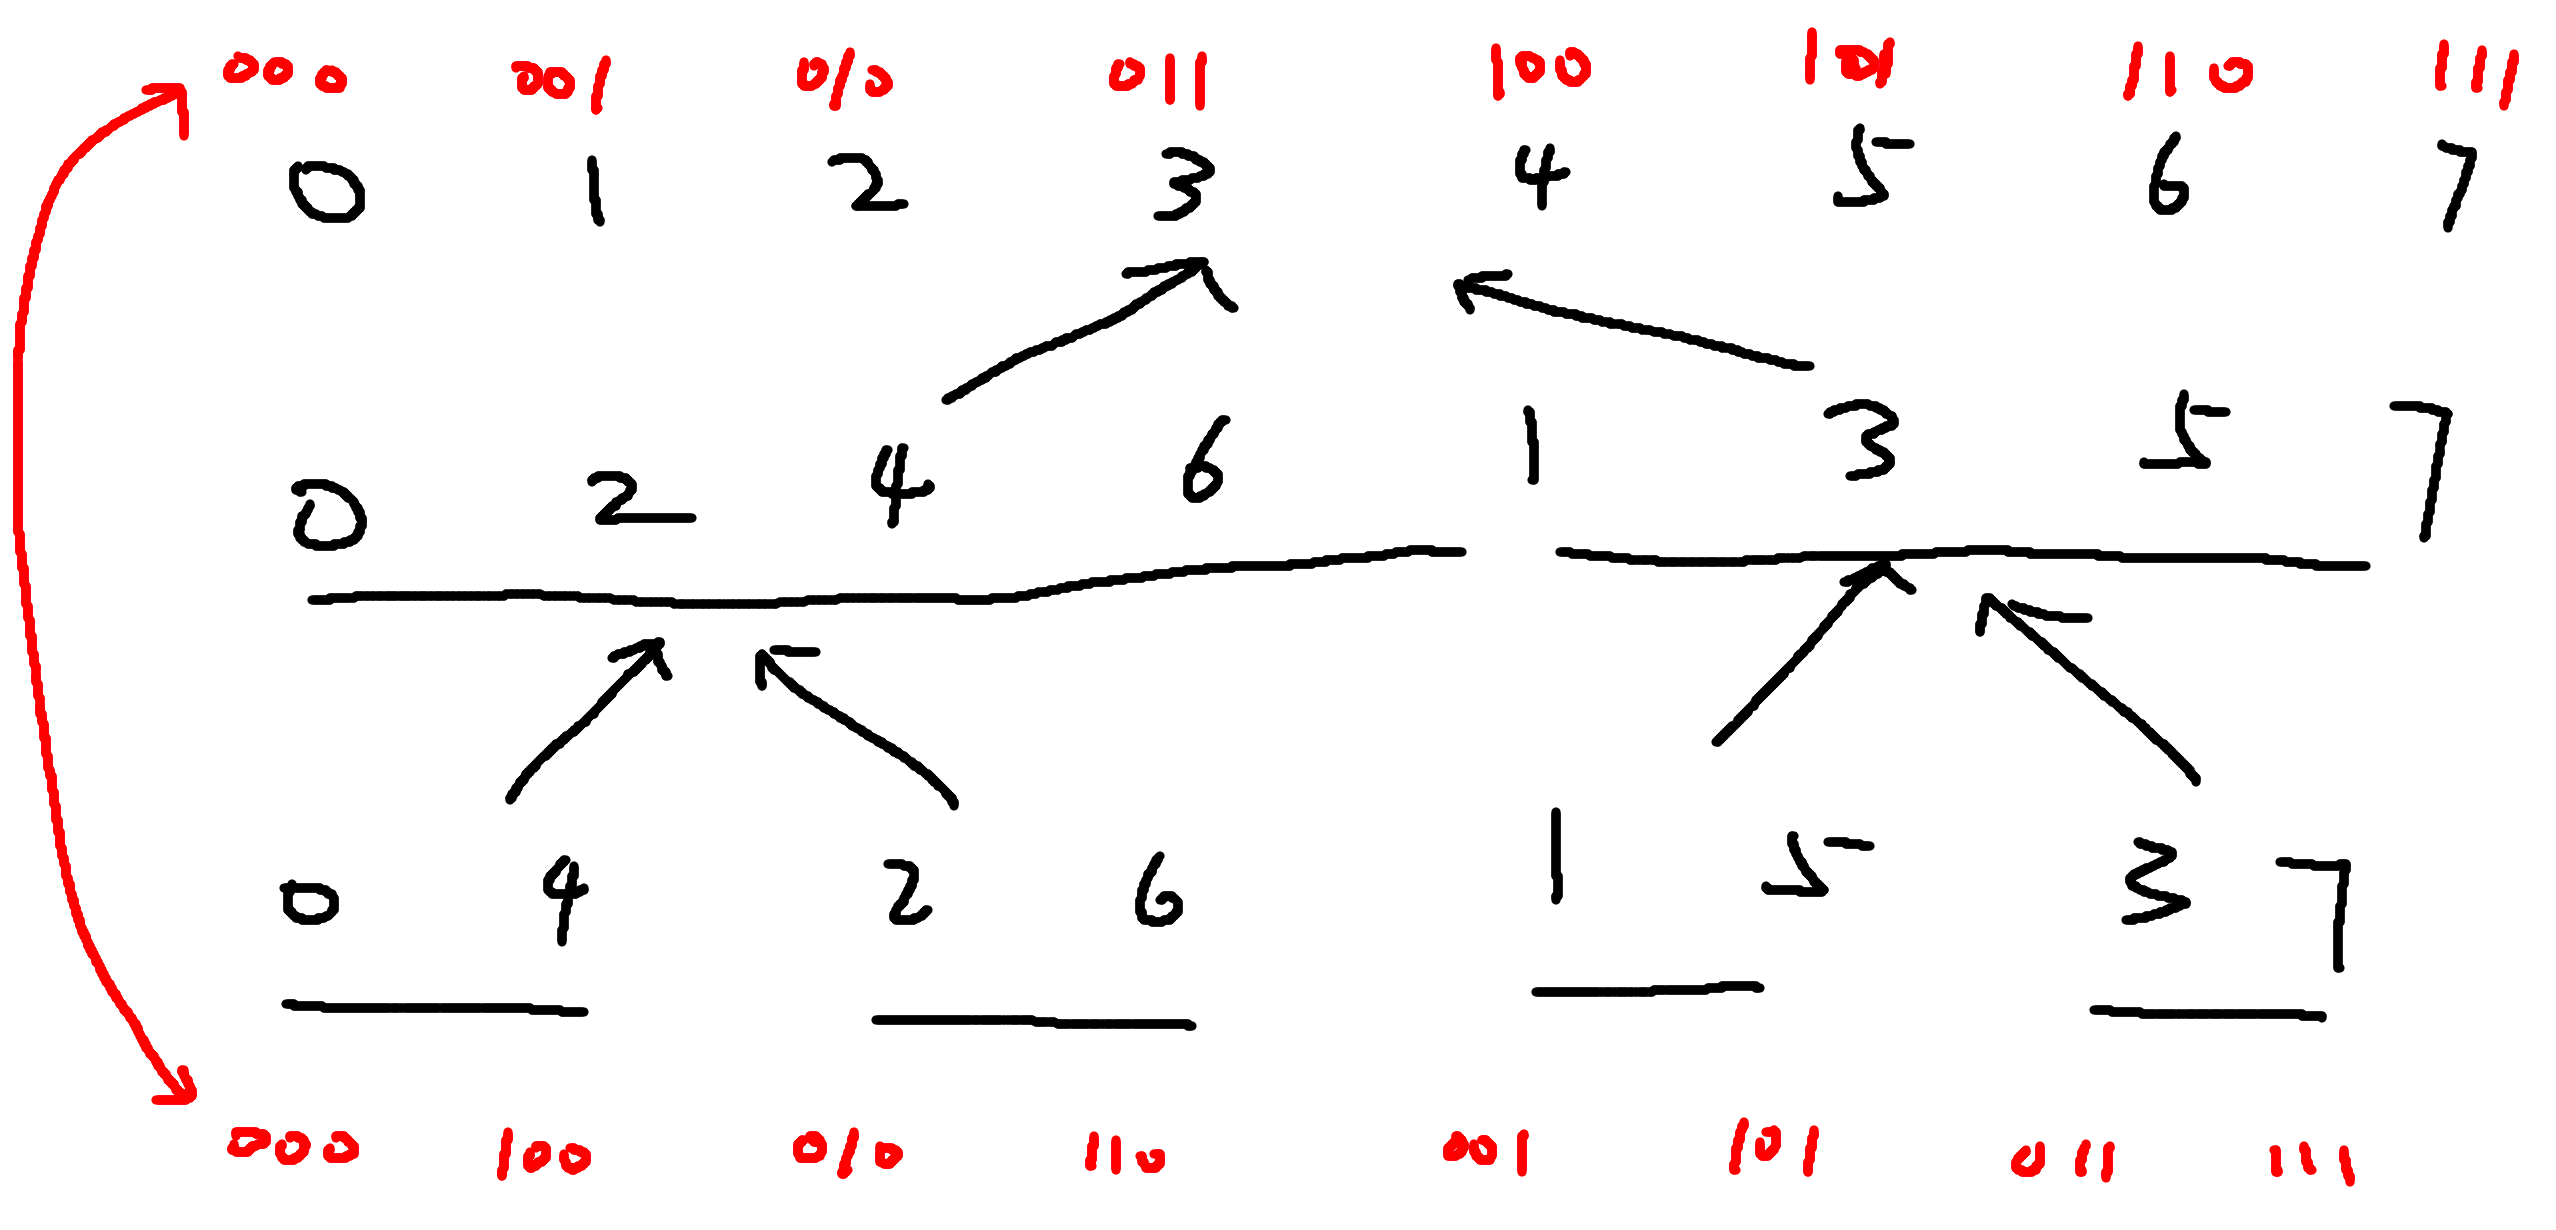 000 001 010 011 100 101 110 111
0 1 2 3 4 5 6 7
0 2 4 6 1 3 5 7
0 4 2 6 1 5 3 7
000 100 010 110 001 101 011 111